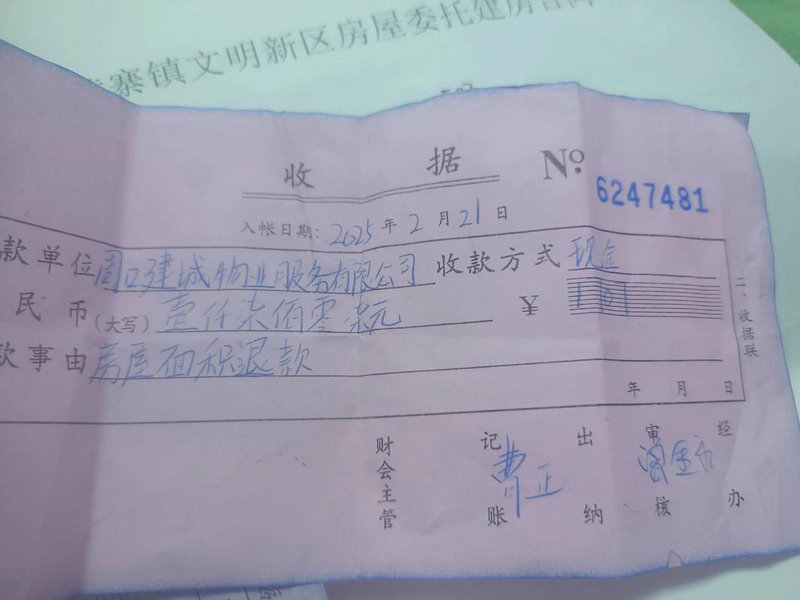 寨镇文明新区房屋委托建房合同
收 据 No. 6247481
入帐日期: 2025 年 2 月 21 日
款单位 周口建城物业服务有限公司 收款方式 现金
民币(大写) 壹仟柒佰零柒元 ¥
款事由 房屋面积退款
年 月 日
二、收据联
财会主管 记账 曹正 出纳 审核 经办